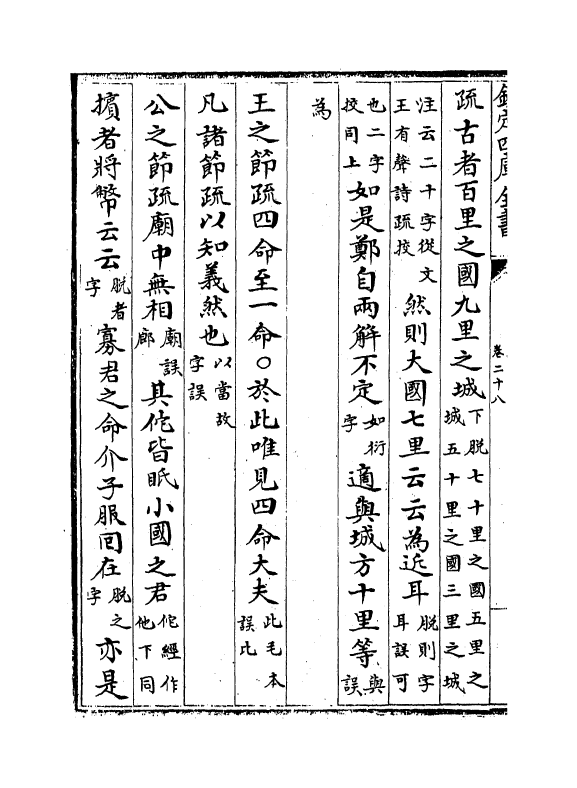 欽定四庫全書
卷二十八
疏古者百里之國九里之城下脫七十里之國五里之城五十里之國三里之城
注云二十字從文王有聲詩疏挍然則大國七里云云為近耳脫則字耳誤可
也二字挍同上如是鄭自兩解不定如衍字適與城方十里等與誤
為
王之節疏四命至一命○於此唯見四命大夫此毛本誤比
凡諸節疏以知義然也以當故字誤
公之節疏廟中無相廟誤廊其佗皆眂小國之君佗經作他下同
擯者將幣云云脫者字寡君之命介子服回在脫之字亦是